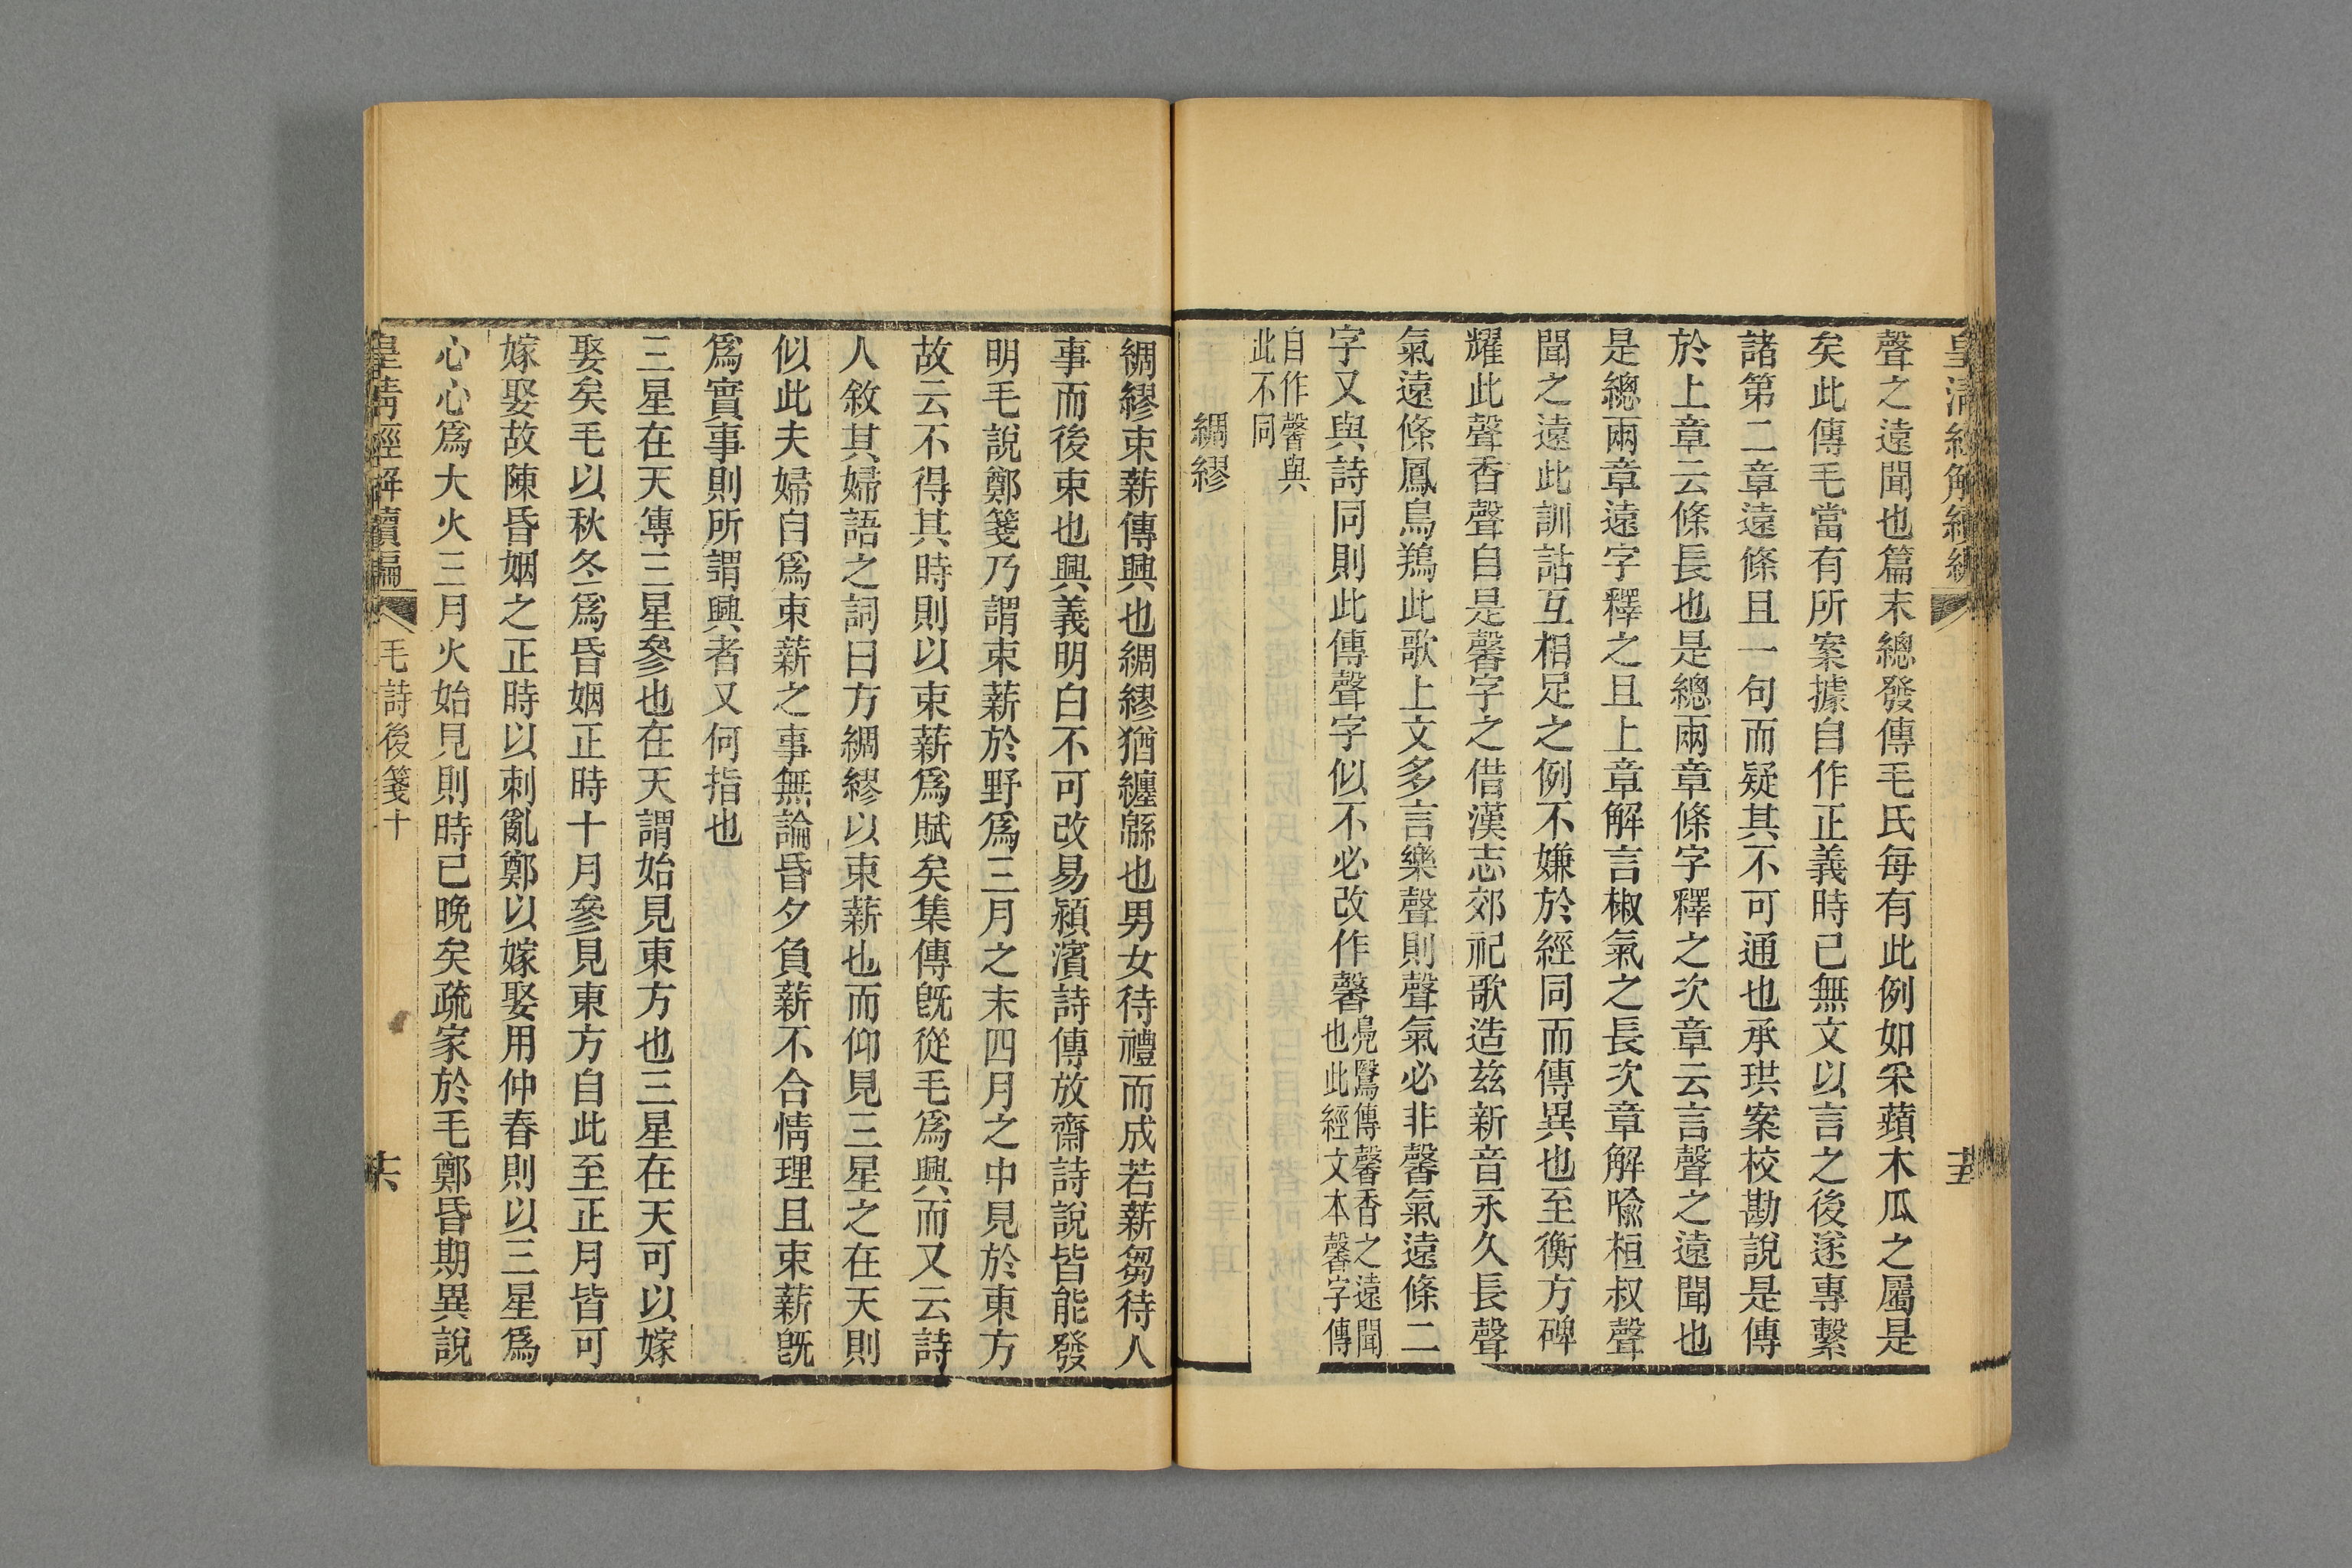 皇清經解續編
十五
聲之遠聞也篇末總發傳毛氏每有此例如采蘋木瓜之屬是
矣此傳毛當有所案據自作正義時已無文以言之後遂專繫
諸第二章遠條且一句而疑其不可通也承珙案校勘說是傳
於上章云條長也是總兩章條字釋之次章云言聲之遠聞也
是總兩章遠字釋之且上章解言椒氣之長次章解喻桓叔聲
聞之遠此訓詁互相足之例不嫌於經同而傳異也至衡方碑
耀此聲香聲自是馨字之借漢志郊祀歌造茲新音永久長聲
氣遠條鳳鳥鴹此歌上文多言樂聲則聲氣必非馨氣遠條二
字又與詩同則此傳聲字似不必改作馨鳧鷖傳馨香之遠聞也此經文本馨字傳
自作馨與此不同
綢繆
綢繆束薪傳興也綢繆猶纏緜也男女待禮而成若薪芻待人
事而後束也興義明白不可改易潁濱詩傳放齋詩說皆能發
明毛說鄭箋乃謂束薪於野爲三月之末四月之中見於東方
故云不得其時則以束薪爲賦矣集傳旣從毛爲興而又云詩
人敘其婦語之詞曰方綢繆以束薪也而仰見三星之在天則
似此夫婦自爲束薪之事無論昏夕負薪不合情理且束薪旣
爲實事則所謂興者又何指也
三星在天傳三星參也在天謂始見東方也三星在天可以嫁
娶矣毛以秋冬爲昏姻正時十月參見東方自此至正月皆可
嫁娶故陳昏姻之正時以刺亂鄭以嫁娶用仲春則以三星爲
心心爲大火三月火始見則時已晚矣疏家於毛鄭昏期異說
皇清經解續編
毛詩後箋十
十六